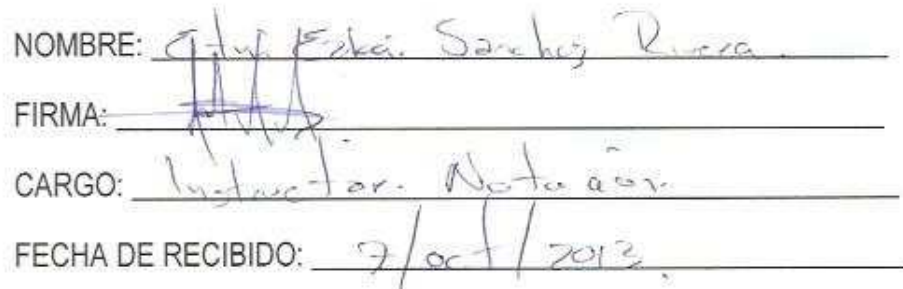 NOMBRE: Sanchez Rivera.
FIRMA:
CARGO: Instructor. Natación.
FECHA DE RECIBIDO: 7/oct/2013.